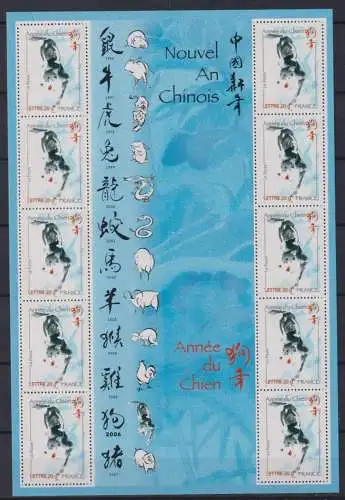 Nouvel
An
Chinois
中国新年
鼠
牛
虎
兔
龍
蛟
馬
羊
猴
雞
狗
2006
猪
Année
du
Chien
狗年
Année du Chien
狗年
LETTRE 20 g FRANCE
Année du Chien
狗年
LETTRE 20 g FRANCE
Année du Chien
狗年
LETTRE 20 g FRANCE
Année du Chien
狗年
LETTRE 20 g FRANCE
Année du Chien
狗年
LETTRE 20 g FRANCE
Année du Chien
狗年
LETTRE 20 g FRANCE
Année du Chien
狗年
LETTRE 20 g FRANCE
Année du Chien
狗年
LETTRE 20 g FRANCE
Année du Chien
狗年
LETTRE 20 g FRANCE
Année du Chien
狗年
LETTRE 20 g FRANCE